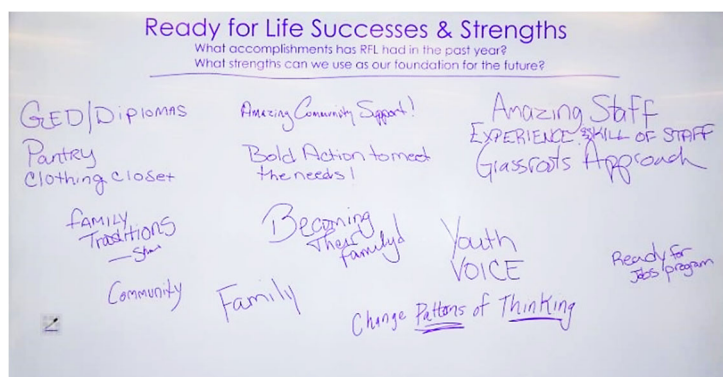 Ready for Life Successes & Strengths
What accomplishments has RFL had in the past year?
What strengths can we use as our foundation for the future?
GED/Diplomas
Pantry
Clothing Closet
Amazing Community Support!
Bold Action to meet
the needs!
Amazing Staff
EXPERIENCE & SKILL OF STAFF
Grassroots Approach
FAMILY
Traditions
Becoming
Their
family
Youth
VOICE
Ready for
Jobs program
Community
Family
Change Pattons of Thinking